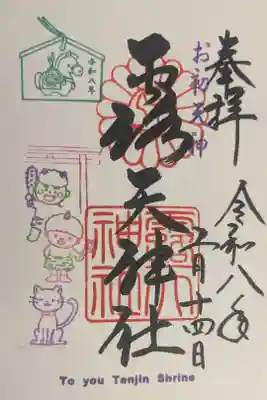 奉拝
令和八年
二月十四日
お初天神
露天神社
露天
神社
令和八年
To you Tenjin Shrine